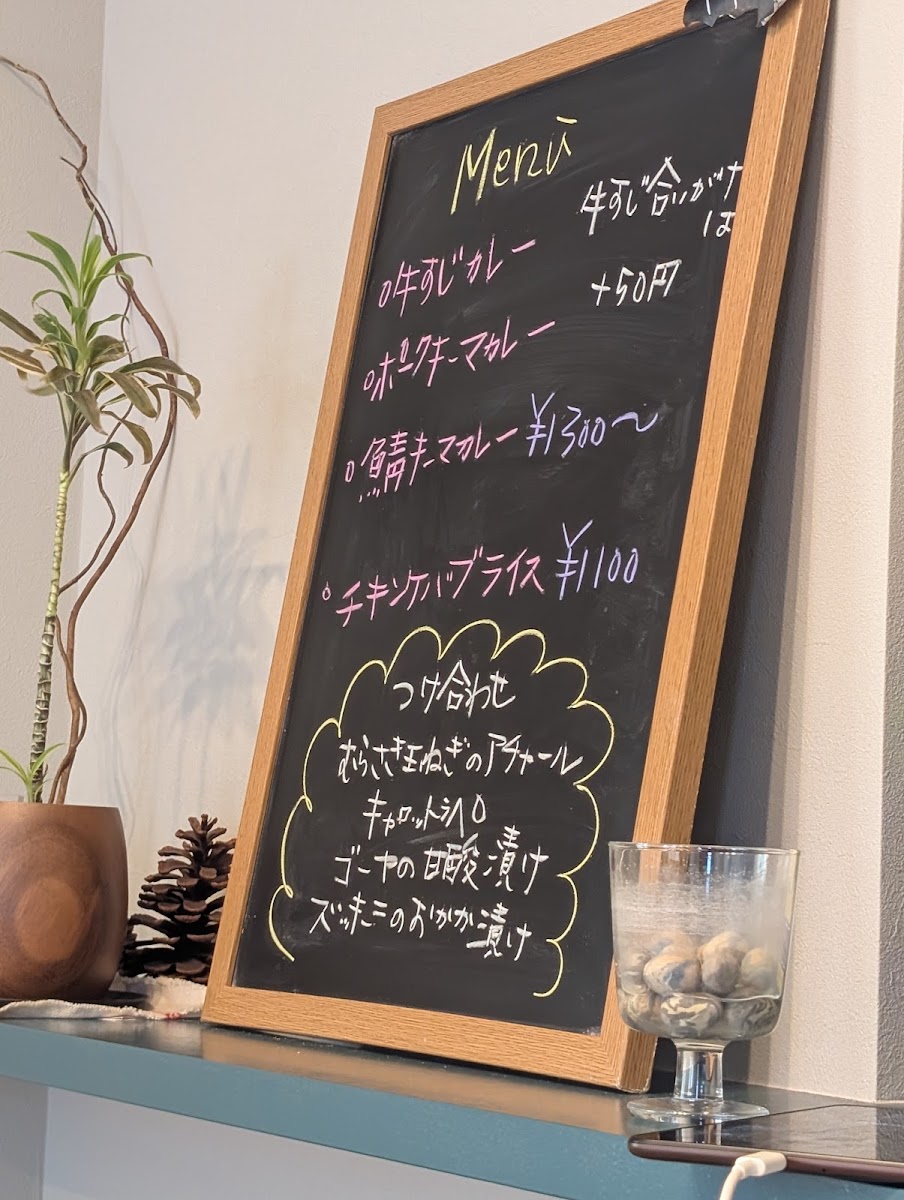 Menù
牛すじ合いがけ
は
+50円
○牛すじカレー
○ポークキーマカレー
○鯖キーマカレー ¥1300〜
○チキンケバブライス ¥1100
つけ合わせ
むらさき玉ねぎのアチャール
キャロットラペ
ゴーヤの甘酸漬け
ズッキーニのおかか漬け